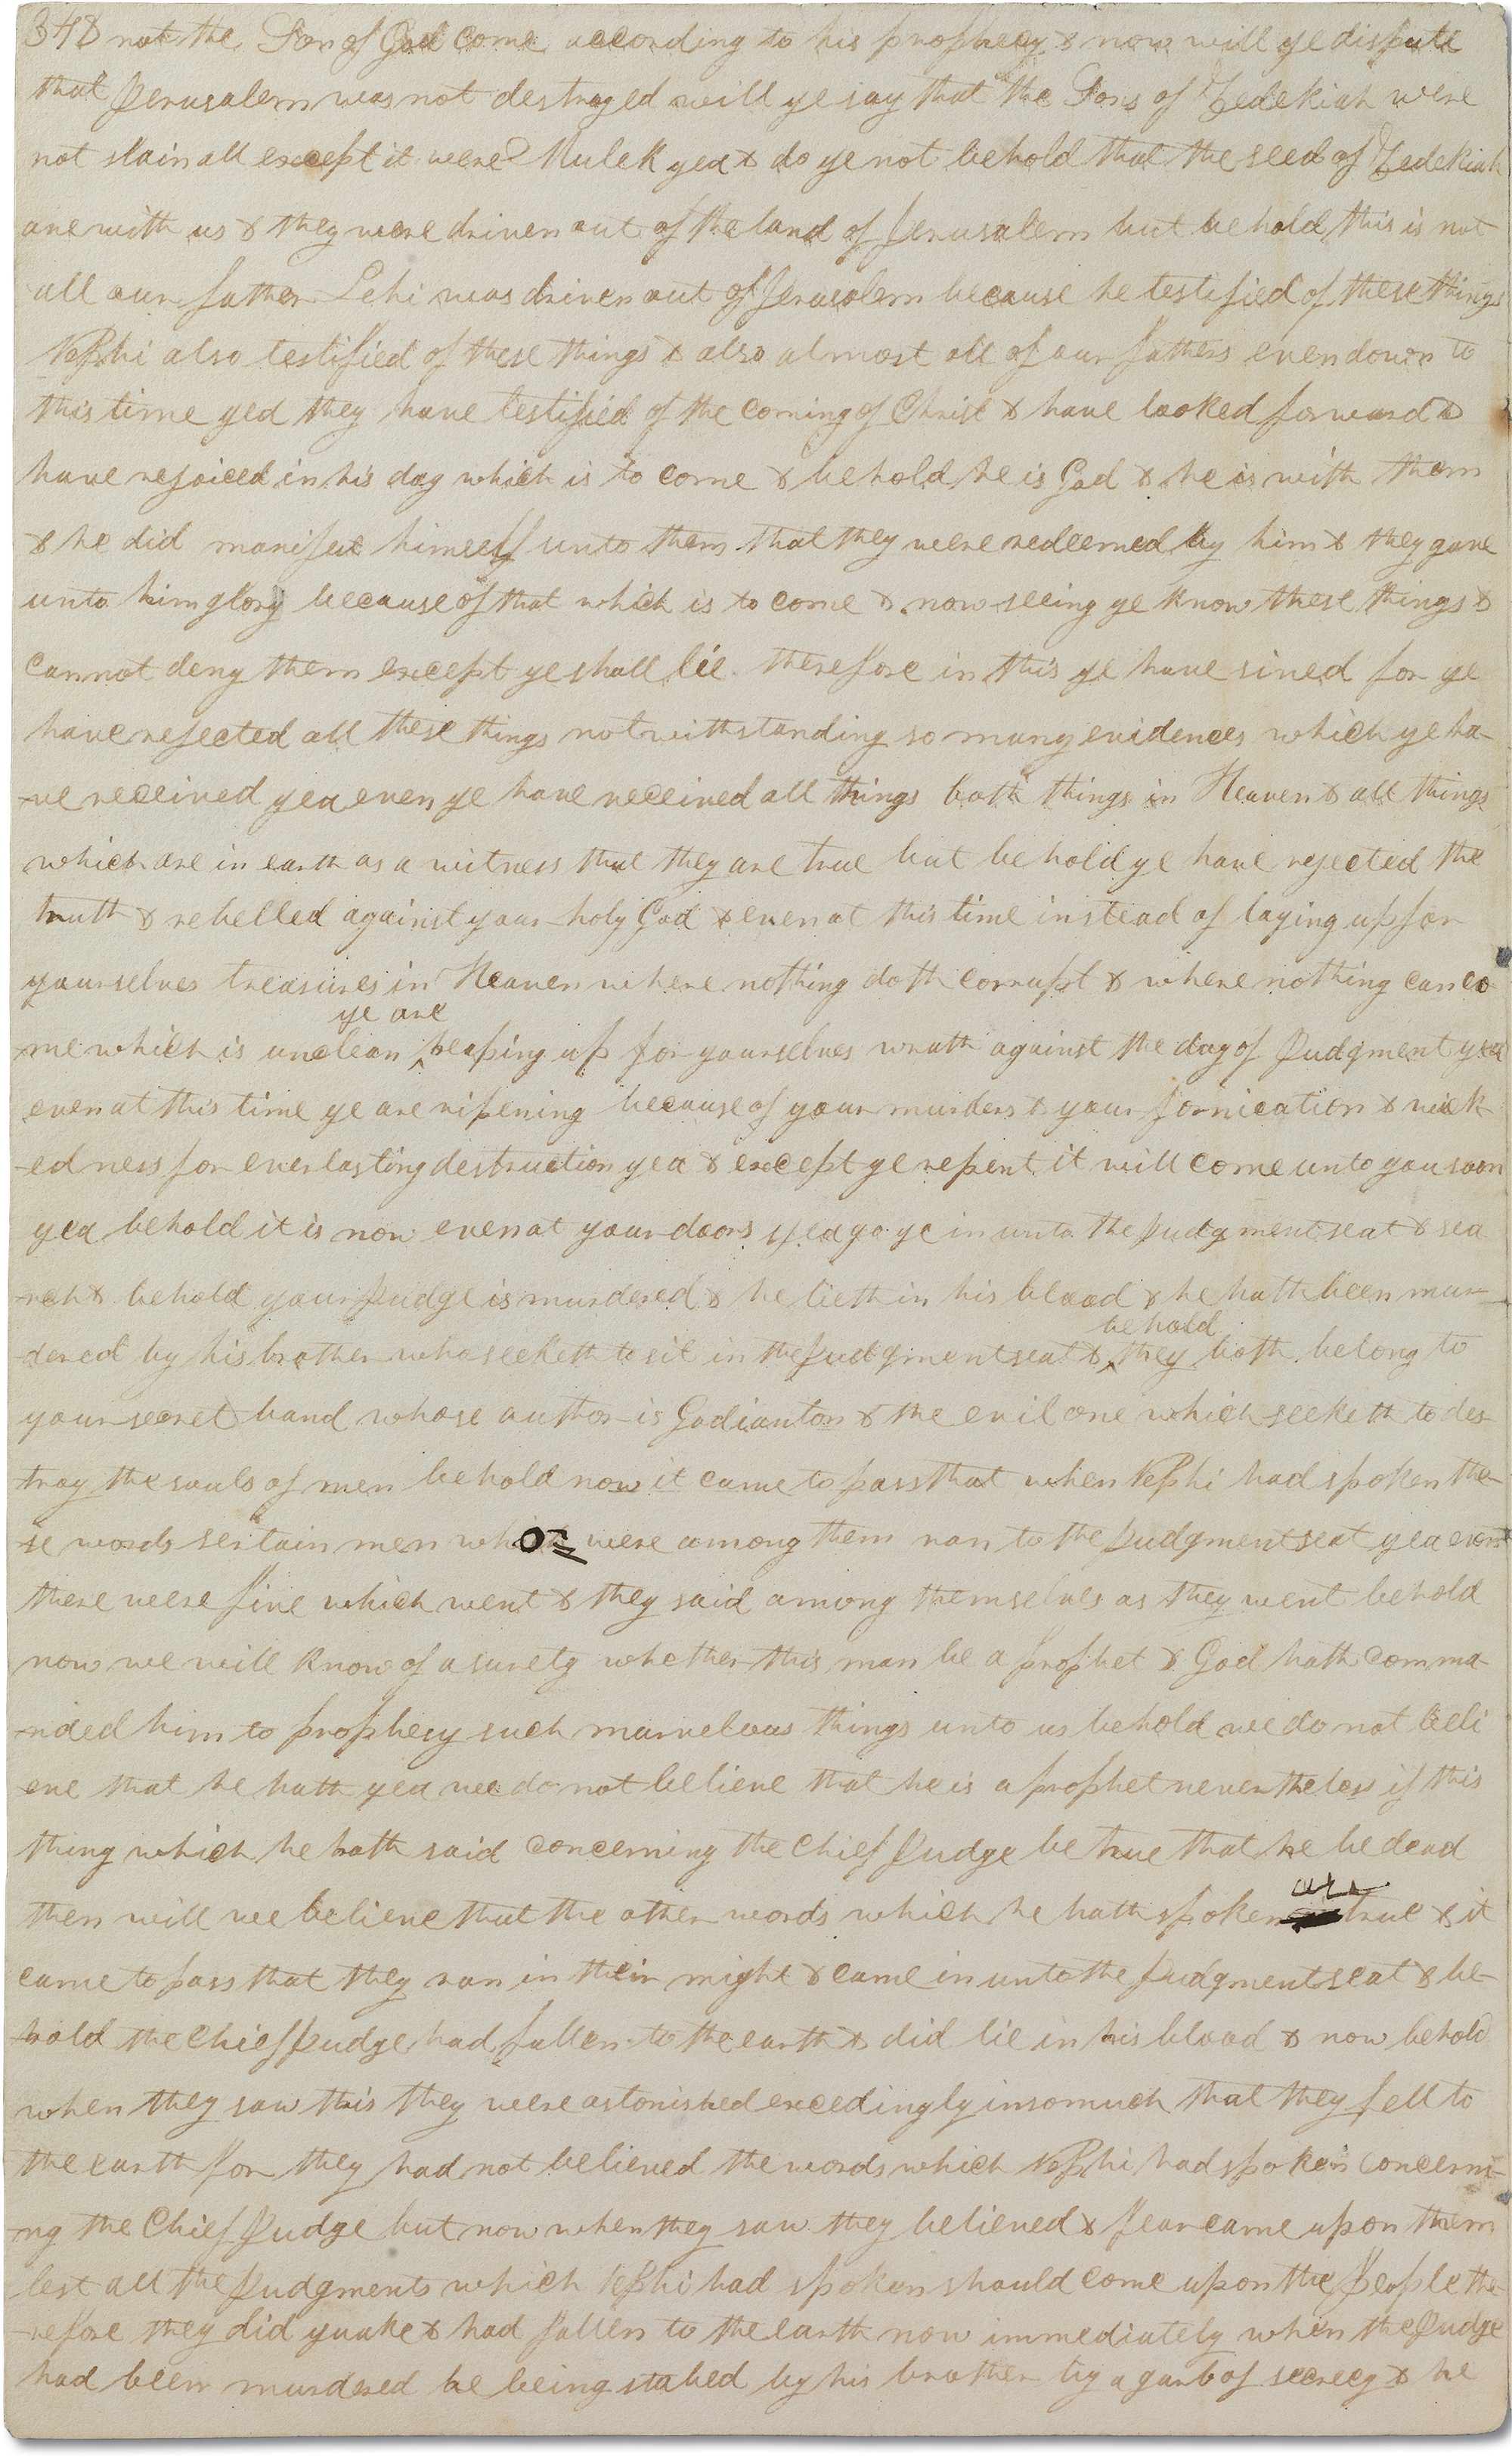 348 not the Son of God come according to his prophecy & now will ye dispute
that Jerusalem was not destroyed will ye say that the Sons of Zedekiah were
not slain all except it were Mulek yea & do ye not behold that the seed of Zedekiah
are with us & they were driven out of the land of Jerusalem but behold this is not
all our father Lehi was driven out of Jerusalem because he testified of these things
Nephi also testified of these things & also almost all of our fathers even down to
this time yea they have testified of the coming of Christ & have looked forward &
have rejoiced in his day which is to come & behold he is God & he is with them
& he did manifest himself unto them that they were redeemed by him & they gave
unto him glory because of that which is to come & now seeing ye know these things &
cannot deny them except ye shall lie therefore in this ye have sined for ye
have rejected all these things notwithstanding so many evidences which ye ha-
-ve received yea even ye have received all things both things in Heaven & all things
which are in earth as a witness that they are true but behold ye have rejected the
truth & rebelled against your holy God & even at this time instead of laying up for
yourselves treasures in Heaven where nothing doth corrupt & where nothing can co
ye are
-me which is unclean heaping up for yourselves wrath against the day of Judgment yea
even at this time ye are ripening because of your murders & your fornication & wick
-edness for everlasting destruction yea & except ye repent it will come unto you soon
yea behold it is now even at your doors yea go ye in unto the Judgment seat & sea
-rch & behold your Judge is murdered & he lieth in his blood & he hath been mur-
behold
-dered by his brother who seeketh to sit in the Judgment seat & they both belong to
your secret band whose author is Gadianton & the evil one which seeketh to des-
troy the souls of men behold now it came to pass that when Nephi had spoken the-
-se words sertain men who were among them ran to the Judgment seat yea even
there were five which went & they said among themselves as they went behold
now we will know of a surety whether this man be a prophet & God hath comma-
-nded him to prophecy such marvelous things unto us behold we do not beli
eve that he hath yea we do not believe that he is a prophet nevertheless if this
thing which he hath said concerning the Chief Judge be true that he be dead
are
then will we believe that the other words which he hath spoken true & it
came to pass that they ran in their might & came in unto the Judgment seat & be-
-hold the Chief Judge had fallen to the earth & did lie in his blood & now behold
when they saw this they were astonished excedingly insomuch that they fell to
the earth for they had not believed the words which Nephi had spoken concerni-
-ng the Chief Judge but now when they saw they believed & fear came upon them
lest all the Judgments which Nephi had spoken should come upon the People the-
-refore they did quake & had fallen to the earth now immediately when the Judge
had been murdered he being stabed by his brother by a garb of secrecy & he